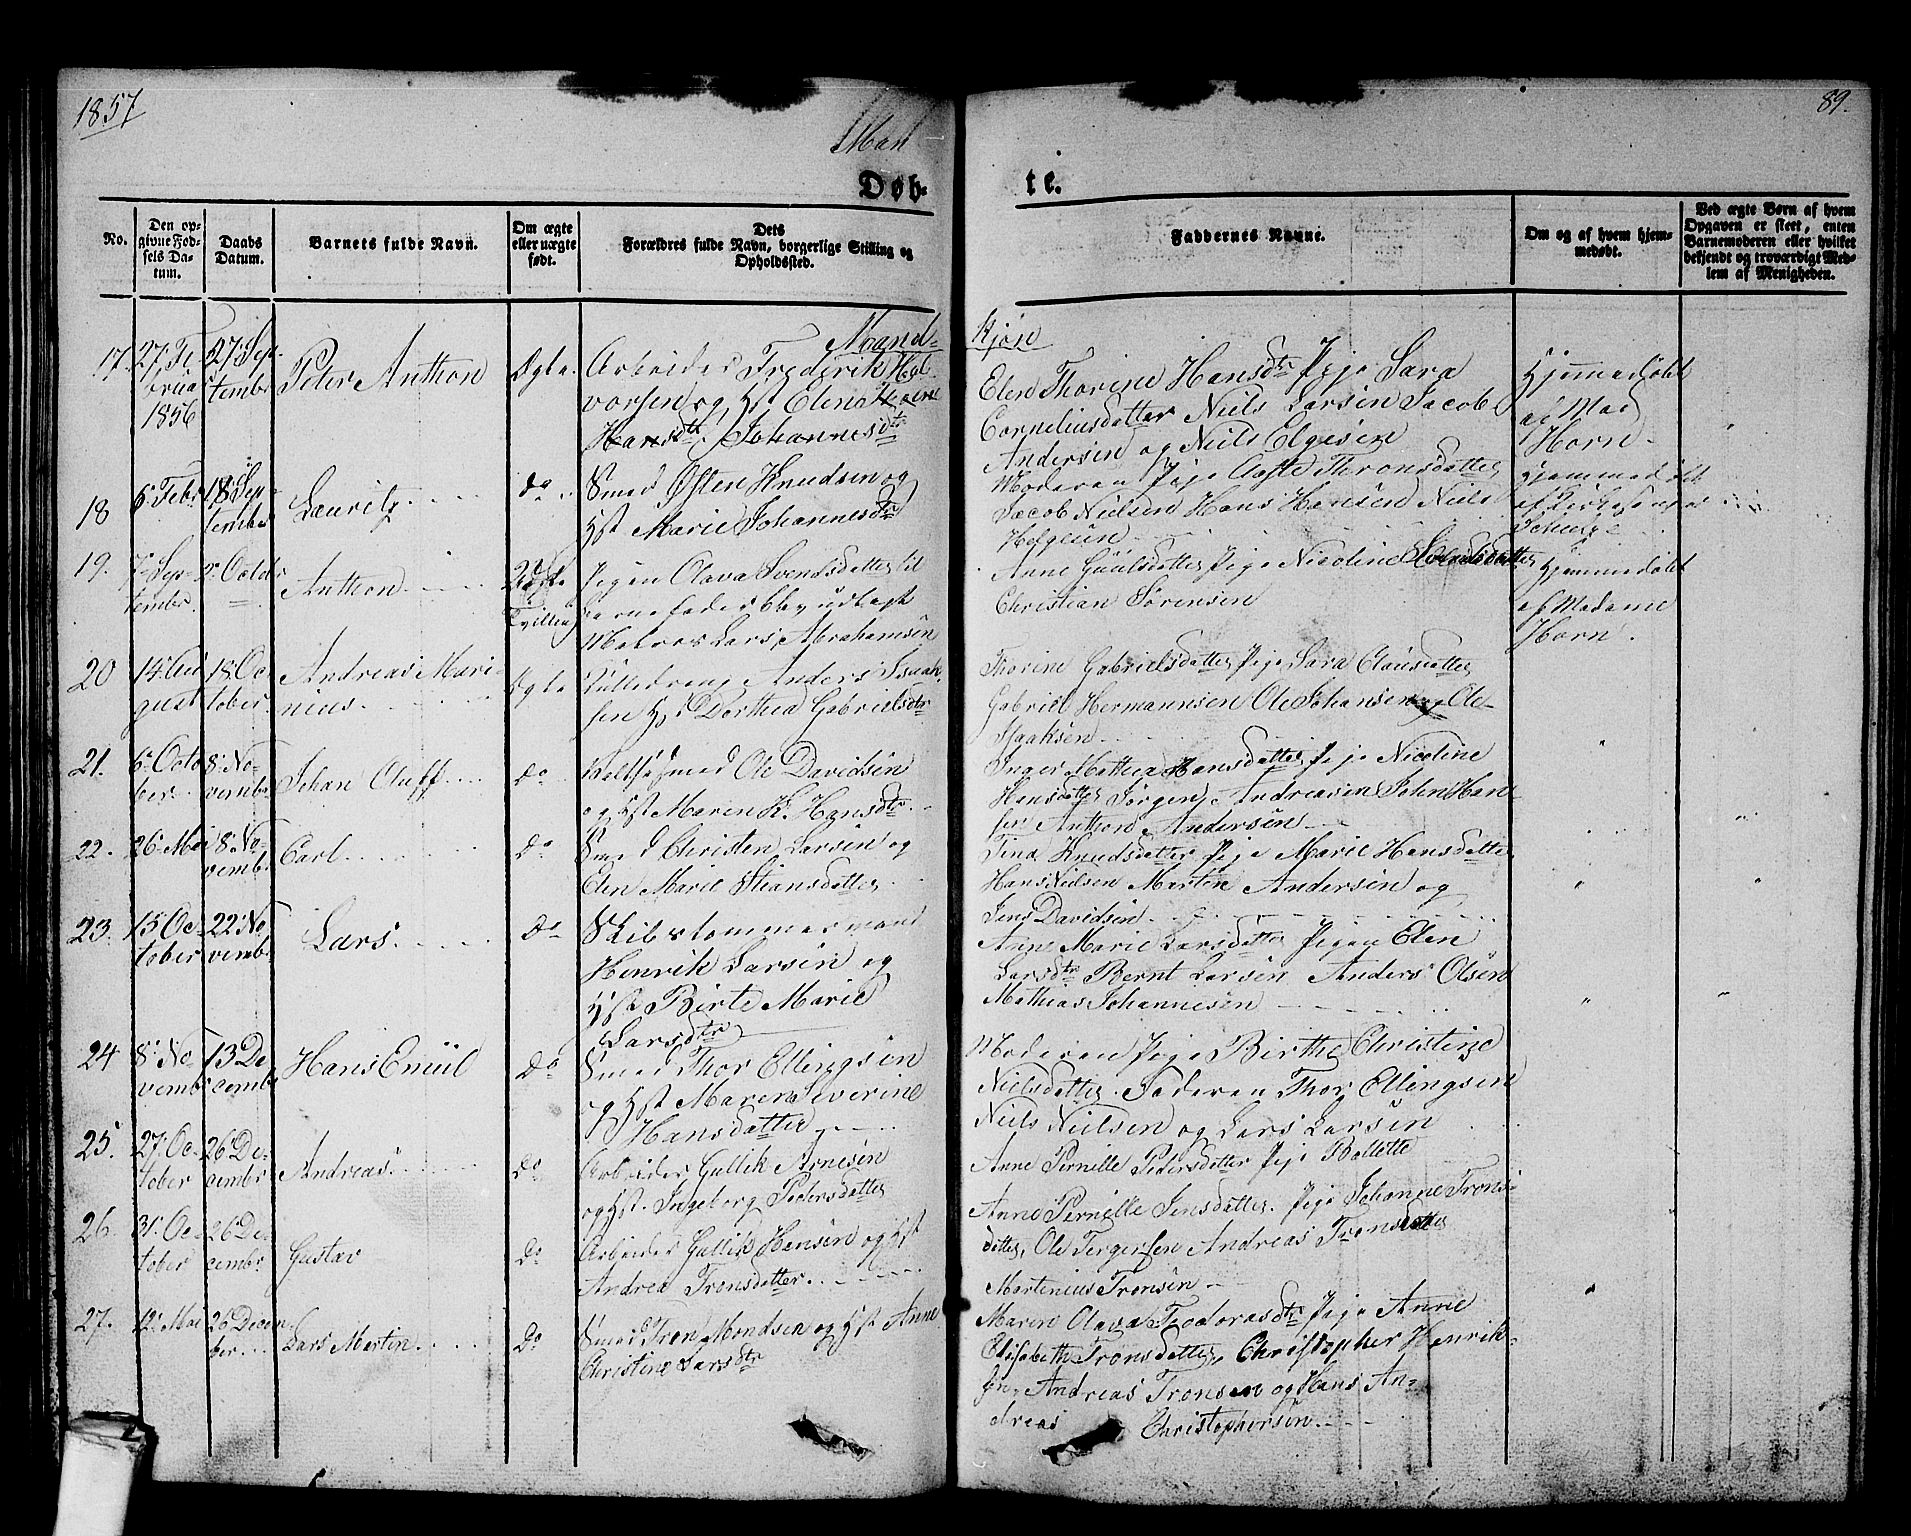 1857
89.
Man
Døb-
te.
No.
Den op-
givne Fød-
sels Da-
tum.
Daabs
Datum.
Barnets fulde Navn.
Om ægte
eller uægte
født.
Dets
Forældres fulde Navn, borgerlige Stilling og
Opholdssted.
Faddernes Navne.
Om og af hvem hjem-
medøbt.
Ved ægte Børn af hvem
Opgaven er skeet, enten
Barnemoderen eller hvilket
bekjendt og troværdigt Med-
lem af Menigheden.
Mand-
Kjøn
17.
27. Fe
bruar
1856
27. Sep-
tembr
Peter Anthon
Ægte.
Arbeider Frederik Hal
vorsen og Hst Elen
Hansdtr. Johannesdtr
Elen Thorine Hansdtr Pige Sara
Corneliusdatter Niels Larsen Jacob
Andersen og Niels Elgesen
Hjemmedøbt
af Mad
Horn
18
6 Febr
18 Sep-
tember
Lauritz
do
Smed Østen Knudsen og
Hst Marie Johannesdtr
Moderen Pige Aaste Thronsdatter
Jacob Nielsen Hans Hansen Niels
Helgesen
Hjemmedøbt
af
19.
7. Sep-
tembr.
2. Octobr
Anthon
Uægte
Tvilling
Pigen Olava Svendsdatter til
Barnefader blev udlagt
Matros Lars Abrahamsen
Anne Gulsdatter Pige Nicoline
Christian Sørensen
Hjemmedøbt
af Madame
Horn.
20
14. Au
gust
18. Oc
tober.
Andreas Mari-
nius
Ægte
Anders Isaak-
sen Hst Dorthea Gabrielsdtr
Thorine Gabrielsdatter Pige Sara Clausdatter
Gabriel Hermannsen Ole Johansen og Ole
Isaaksen
21.
6. Octo
ber
8. No-
vembr
Johan Oluff
Do
Smed Ole Davidsen
og Hst Maren K. Hansdtr.
Inger Mathea Hansdatter Pige Nicoline
Hansdatter Jørgen Andreasen John Han-
sen Anthon Andersen
22.
26. Mai
8. No-
vembr
Carl
Do
Smed Christen Larsen og
Elen Marie Hansdatter
Tina Knudsdatter Pige Marie Hansdatter
Hans Nielsen Martin Andersen og
Jens Davidsen
23.
15. Oc-
tober
22. No
vembr
Lars
Do
Skibstømmermand
Henrik Larsen og
Hst Birte Marie
Larsdtr
Anne Marie Larsdatter Pigen Elen
Larsdtr Bernt Larsen Anders Olsen
Mathias Johannesen
24
8. No
vembr
13 De
cembr
Hans Emiil
Do
Smed Thor Ellingsen
og Hst Maren Severine
Hansdatter
Moderen Pige Birthe Christine
Nielsdatter. Faderen Thor Ellingsen
Niels Nielsen og Lars Larsen
25.
27. Oc-
tober
26 De-
cembr
Andreas
Do
Arbeider Gullik Arnesen
og Hst. Ingeborg Pedersdatter
Anne Pernille Pedersdatter Pige Bollette
26.
31. Oc-
tober
26 De-
cembr
Gustav
Do
Arbeider Gullik Hansen og Hst
Andrea Tronsdatter
Anne Pernille Jensdatter. Pige Johanne Trons-
datter, Ole Tergersen Andreas Tronsdatter
Martinius Tronsen
27.
12. Mai
26 Decem-
ber
Lars Martin
Do
Smed Tron Mondsen og Hst Anne
Christine Larsdtr
Maren Olava Teodorasdtr Pige Anne
Elisabeth Tronsdatter, Christopher Henrik-
sen, Andreas Tronsen og Hans An-
dreas Christophersen